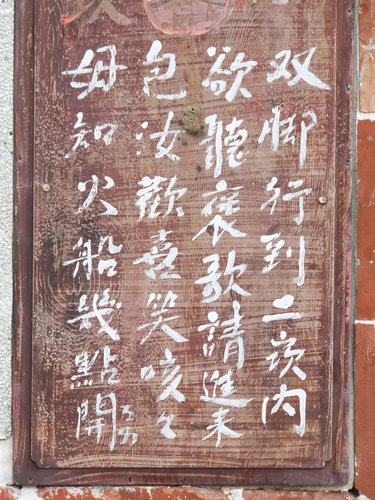 双脚行到二崁內
欲聽褒歌請進來
包汝歡喜笑咳々
毋知火船幾點開